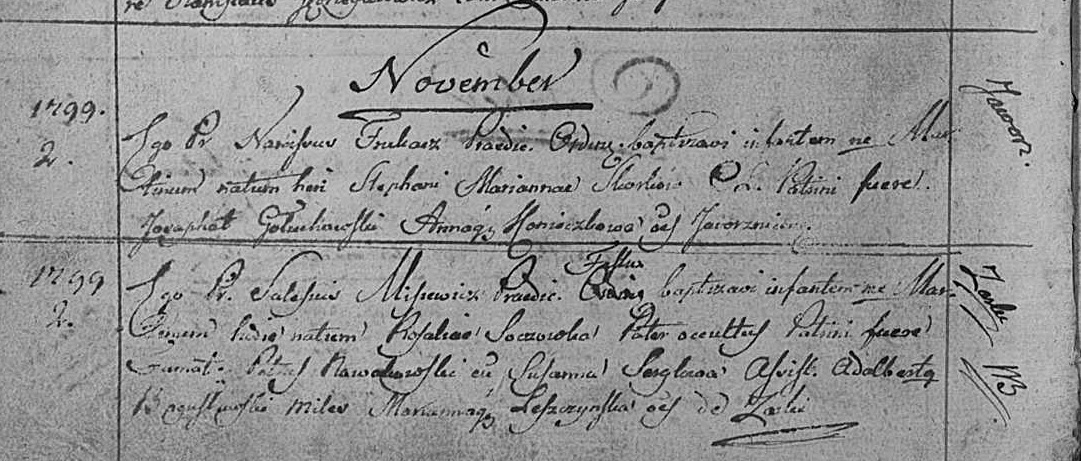 November
1799.
2.
Ego Pr. Narcissus Praedic. Ordinis baptizavi infantem ne Mar
tinum natum heri Stephani Mariannae C. L. Patrini fuere
Josaphat Gołuchowski Annaq; Konieczkowa oēs Jaworznicen.
Jawor.
1799
2.
Ego Pr. Salesius Misiewicz Praedic. Ordinis baptizavi infantem ne Mar
tinum hodie natum Rosaliae Pater occultus Patrini fuere
Petrus Nawakowski cu Susanna Assist. Adalbertq
miles Mariannaq; Leszczynska oēs de Zarki
Zarki
NB